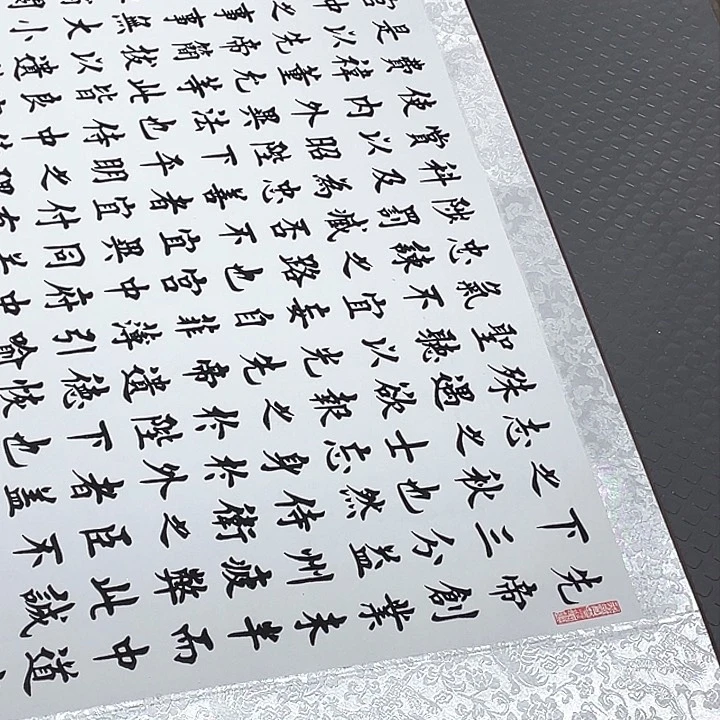 先帝創業未半而中道
下三分益州疲弊此誠
之秋也然侍衛之臣不
志之士忘身於外者蓋
殊遇欲報之於陛下也
聖聽以光先帝遺德恢
氣不宜妄自菲薄引喻
忠諫之路也宮中府中
陟罰臧否不宜異同
科及為忠善者宜付有
賞以昭陛下平明之理
使內外異法也侍中
費禕董允等此皆良
是以先帝簡拔以遺
宮中之事事無大小